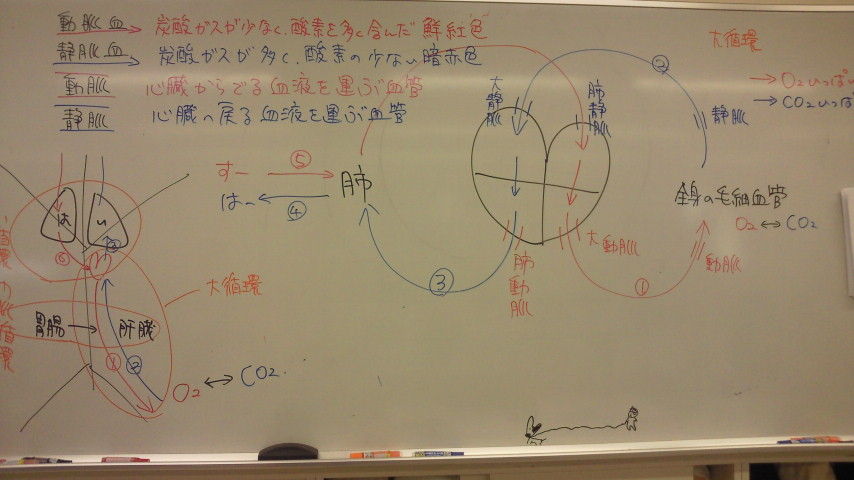 動脈血 → 炭酸ガスが少なく、酸素を多く含んだ鮮紅色
静脈血 → 炭酸ガスが多く、酸素の少ない暗赤色
動脈 心臓からでる血液を運ぶ血管
静脈 心臓へ戻る血液を運ぶ血管
大循環
→ O2いっぱい
→ CO2いっぱ
②
大静脈
肺静脈
静脈
すー ⑤
はー ④
肺
全身の毛細血管
O2 ↔ CO2
大動脈
動脈
肺動脈
③
①
は
い
⑤
大循環
胃腸 → 肝臓
①
②
O2 ↔ CO2